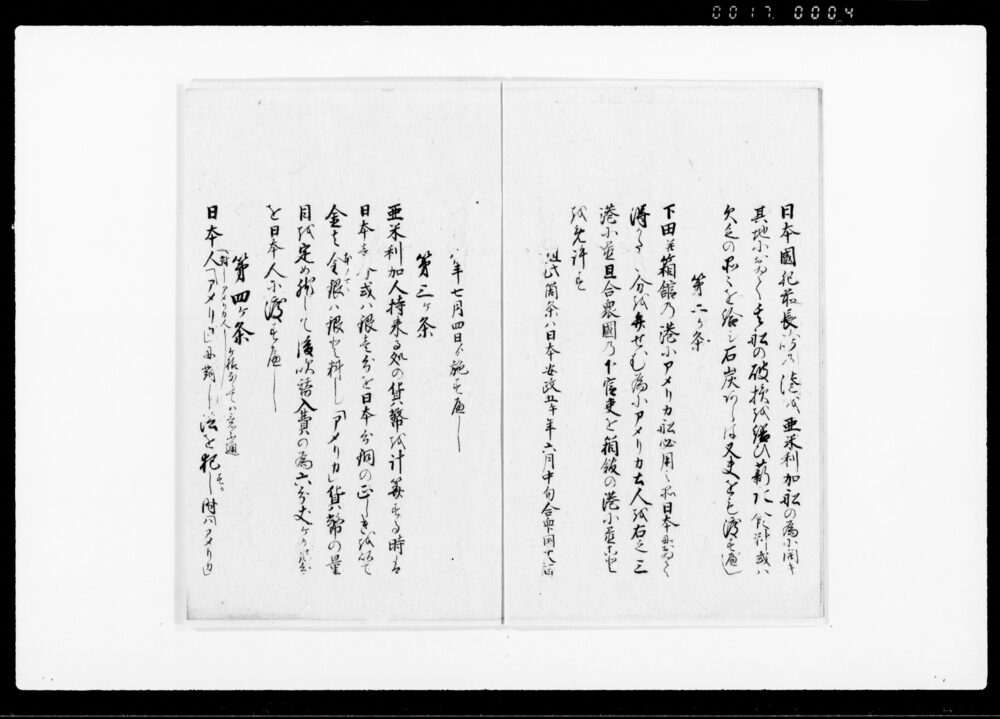 0017 0004
日本國肥前長崎の港を亜米利加船の為に開き
其地におゐて其船の破損を繕ひ薪水食料或は
欠乏の品を給し石炭あらは又夫をも渡すへし
第二ヶ条
下田并箱館の港にアメリカ船必用の品日本におゐて
得かたき分を弁せむ為にアメリカ士人を右之二
港に置且合衆國の下官吏を箱館の港に置こと
を免許す
但此箇条ハ日本安政五午年六月中旬合衆国千八百
年七月四日より施すへし
第三ヶ条
亜米利加人持来る処の貨幣を計算する時は
日本壱分或ハ銀壱分を日本分銅の正しきを以て
金は金銀は銀と秤し「アメリカ」貨幣の量
目を定め然して後吹替入費の為六分丈ケの余分
を日本人に渡すへし
第四ヶ条
日本人「アメリカ人」に対し法を犯す時ハ「アメリカ」